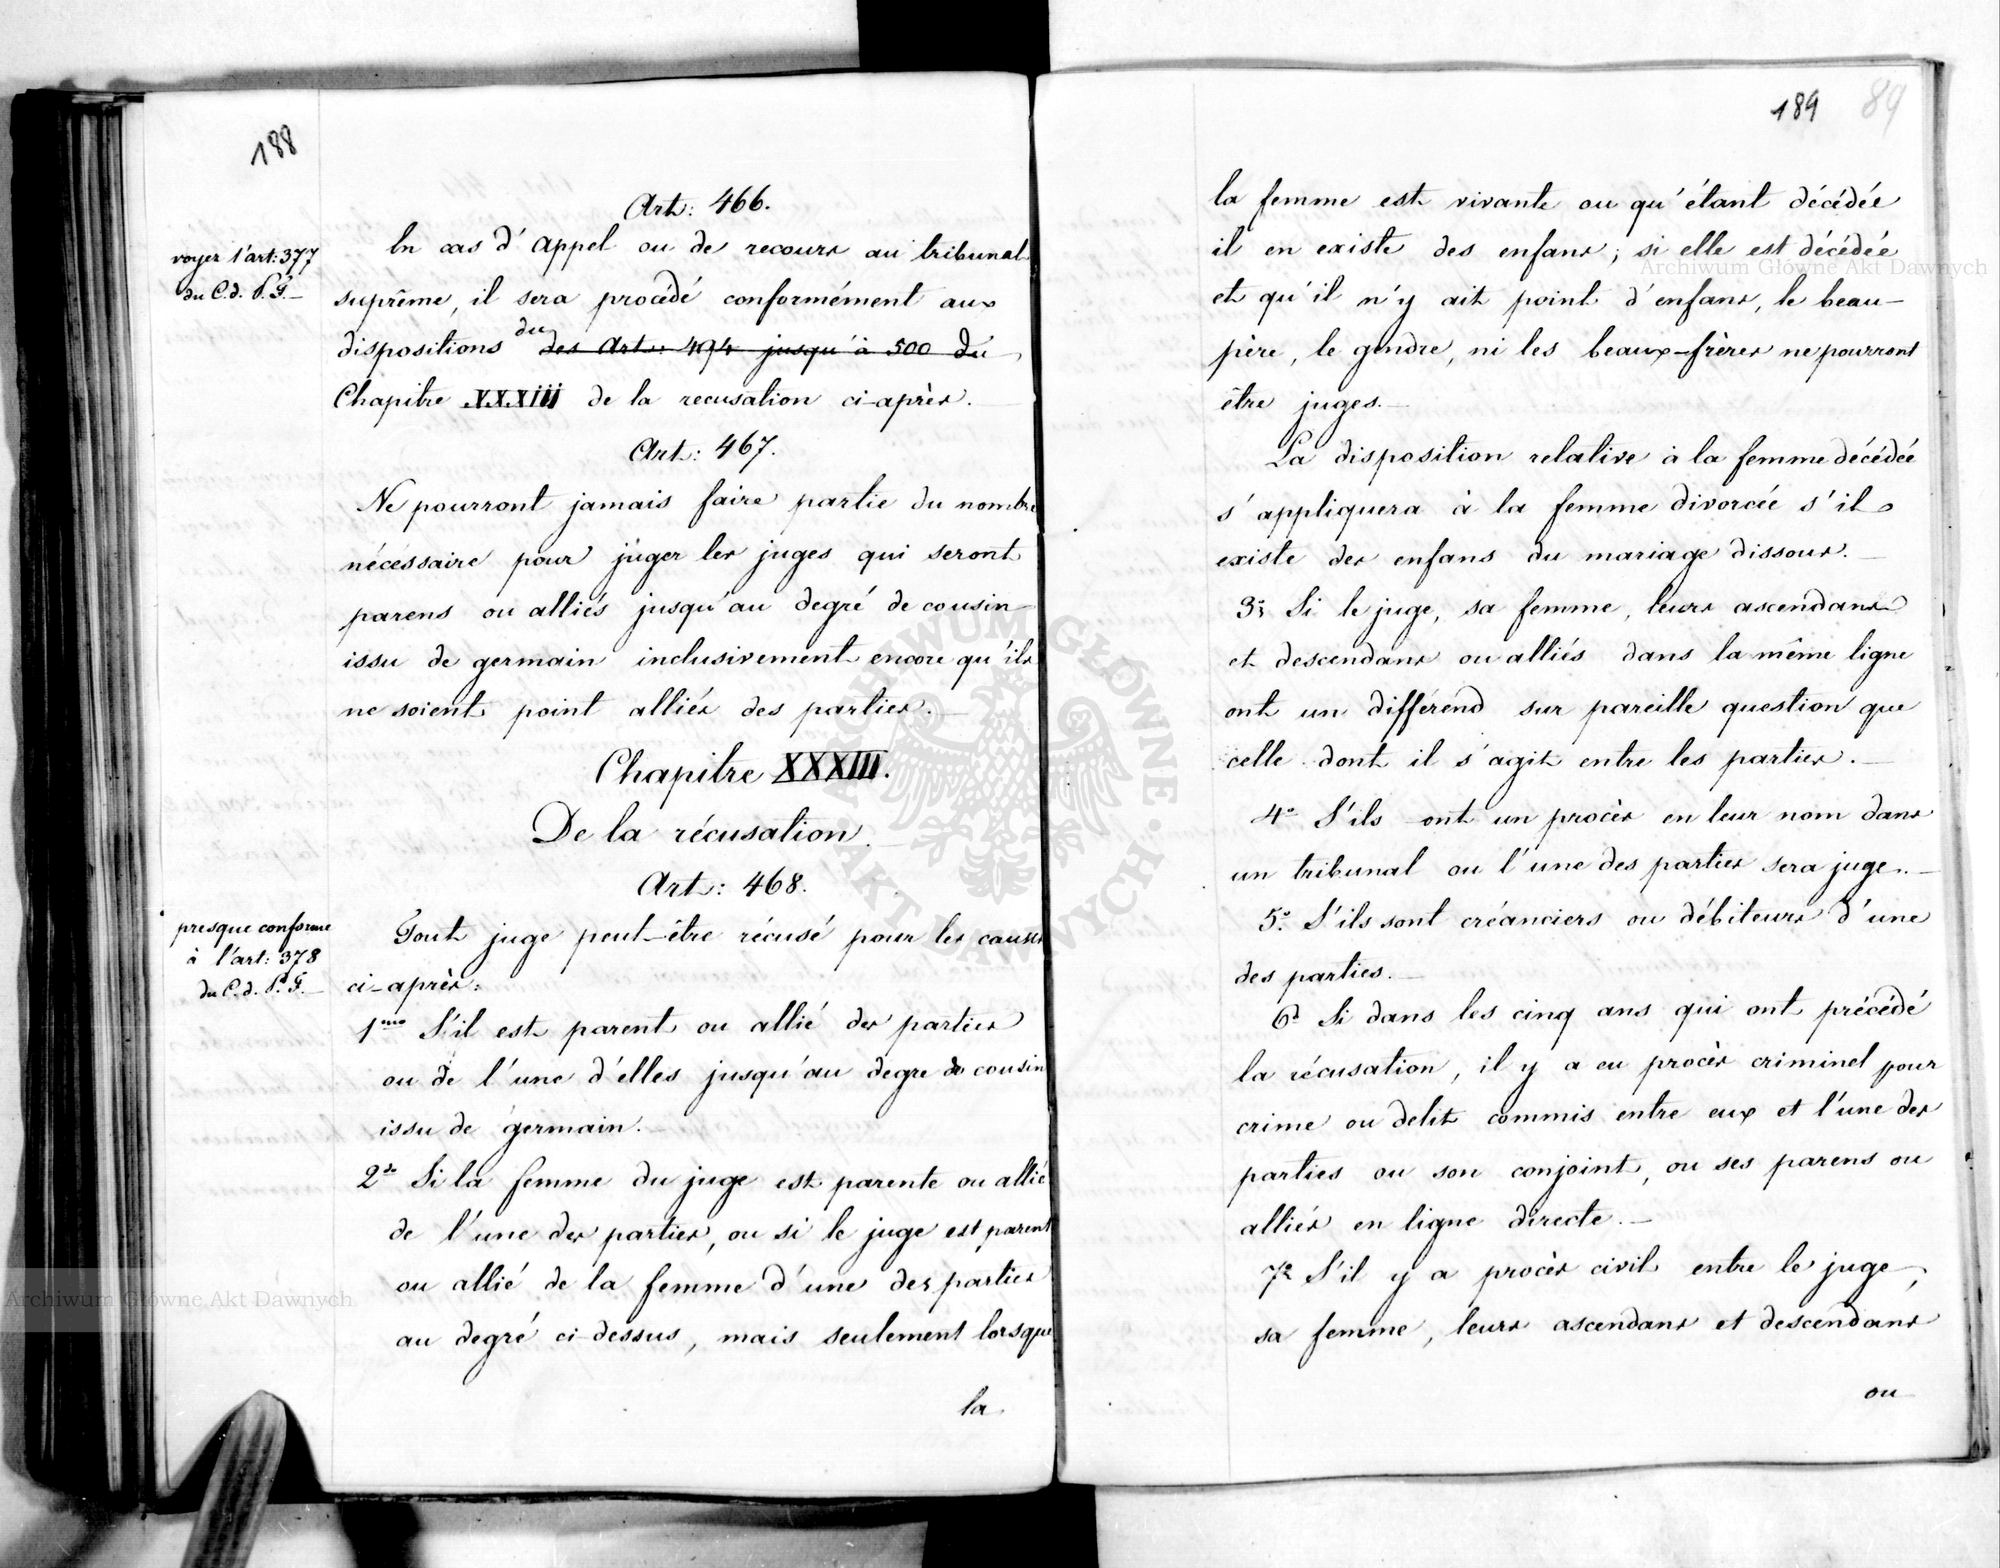 188
Art: 466.
voyez l'art: 377
du C. d. P. F.
En cas d'appel ou de recours au tribunal
suprême, il sera procédé conformément aux
dispositions du des Arts: 494 jusqu'à 500 du
Chapitre XXXIII de la recusation ci-après.
Art: 467.
Ne pourront jamais faire partie du nombre
nécessaire pour juger les juges qui seront
parens ou alliés jusqu'au degré de cousin
issu de germain inclusivement encore qu'ils
ne soient point alliés des parties.
Chapitre XXXIII.
De la récusation.
Art: 468.
presque conforme
à l'art: 378
du C. d. P. F.
Tout juge peut-être récusé pour les causes
ci-après:
1mo S'il est parent ou allié des parties
ou de l'une d'elles jusqu'au degre de cousin
issu de germain.
2do Si la femme du juge est parente ou allié
de l'une des parties, ou si le juge est parent
ou allié de la femme d'une des parties
au degré ci-dessus, mais seulement lorsque
la
189 89
la femme est vivante ou qu'étant décédée
il en existe des enfans; si elle est décédée
et qu'il n'y ait point d'enfans, le beau-
père, le gendre, ni les beaux-frères ne pourront
être juges.
La disposition relative à la femme décédée
s'appliquera à la femme divorcée s'il
existe des enfans du mariage dissous.
3o Si le juge, sa femme, leurs ascendans
et descendans ou alliés dans la même ligne
ont un différend sur pareille question que
celle dont il s'agit entre les parties.
4o S'ils ont un procès en leur nom dans
un tribunal ou l'une des parties sera juge.
5o S'ils sont créanciers ou débiteurs d'une
des parties.
6o Si dans les cinq ans qui ont précédé
la récusation, il y a eu procès criminel pour
crime ou delit commis entre eux et l'une des
parties ou son conjoint, ou ses parens ou
alliés en ligne directe.
7o S'il y a procès civil entre le juge,
sa femme, leurs ascendans et descendans
ou
Archiwum Główne Akt Dawnych
Archiwum Główne Akt Dawnych
ARCHIWUM GŁÓWNE · AKT DAWNYCH ·